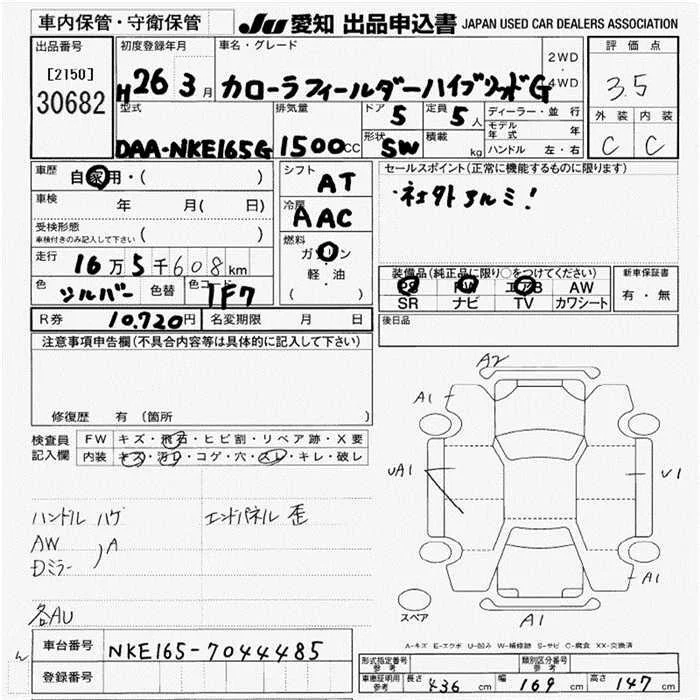 車内保管・守衛保管
JU 愛知 出品申込書 JAPAN USED CAR DEALERS ASSOCIATION
出品番号
[2150]
30682
初度登録年月
H 26 3月
車名・グレード
カローラフィールダーハイブリッドG
2WD
・
4WD
評価点
3.5
外装 内装
C C
型式
DAA-NKE165G
排気量
1500cc
ドア 5
定員 5人
形状 SW
積載 kg
ディーラー・並行
モデル年式 年
ハンドル 左・右
車歴 自家用・( )
車検 年 月( 日)
受検形態
車検付きのみ記入して下さい ( )
走行 16万5千608km
色 シルバー 色替 色コード 1F7
シフト AT
冷房 AAC
燃料
ガソリン
軽・油
( )
セールスポイント(正常に機能するものに限ります)
・社外アルミ!
装備品(純正品に限り○をつけてください)
PS PW エアB AW
SR ナビ TV カワシート
新車保証書
有・無
R券 10.720円 名変期限 月 日
後日品
注意事項申告欄(不具合内容等は具体的に記入して下さい)
修復歴 有 (箇所 )
検査員
記入欄
FW キズ・飛石・ヒビ割・リペア跡・X要
内装 キズ・汚れ・コゲ・穴・スレ・キレ・破レ
ハンドル ハゲ エンドパネル 歪
AW
Dミラー ) A
各AU
A2
A1
UA1
U1
A1
A1
スペア
A-キズ E-エクボ U-凹み W-補修跡 S-サビ C-腐食 XX-交換済
ん
車台番号 NKE165-7044485
登録番号
形式指定番号 参考 類別区分番号 参考
車庫証明用 参考 長さ 436 cm 幅 169 cm 高さ 147 cm